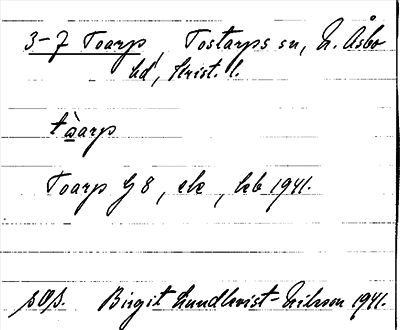 3-7 Toarp, Tostarps sn, N. Åsbo
hd, Krist. l.
tàarp
Toarp G 8, ek, kb 1941.
s. 0/8. Birgit Lundkvist-Nilsson 1941.